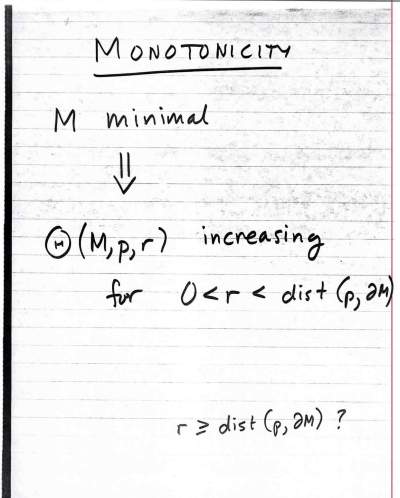 MONOTONICITY
M minimal
⇓
Θ(M,p,r) increasing
for 0<r < dist (p,∂M)
r ≥ dist (p,∂M) ?